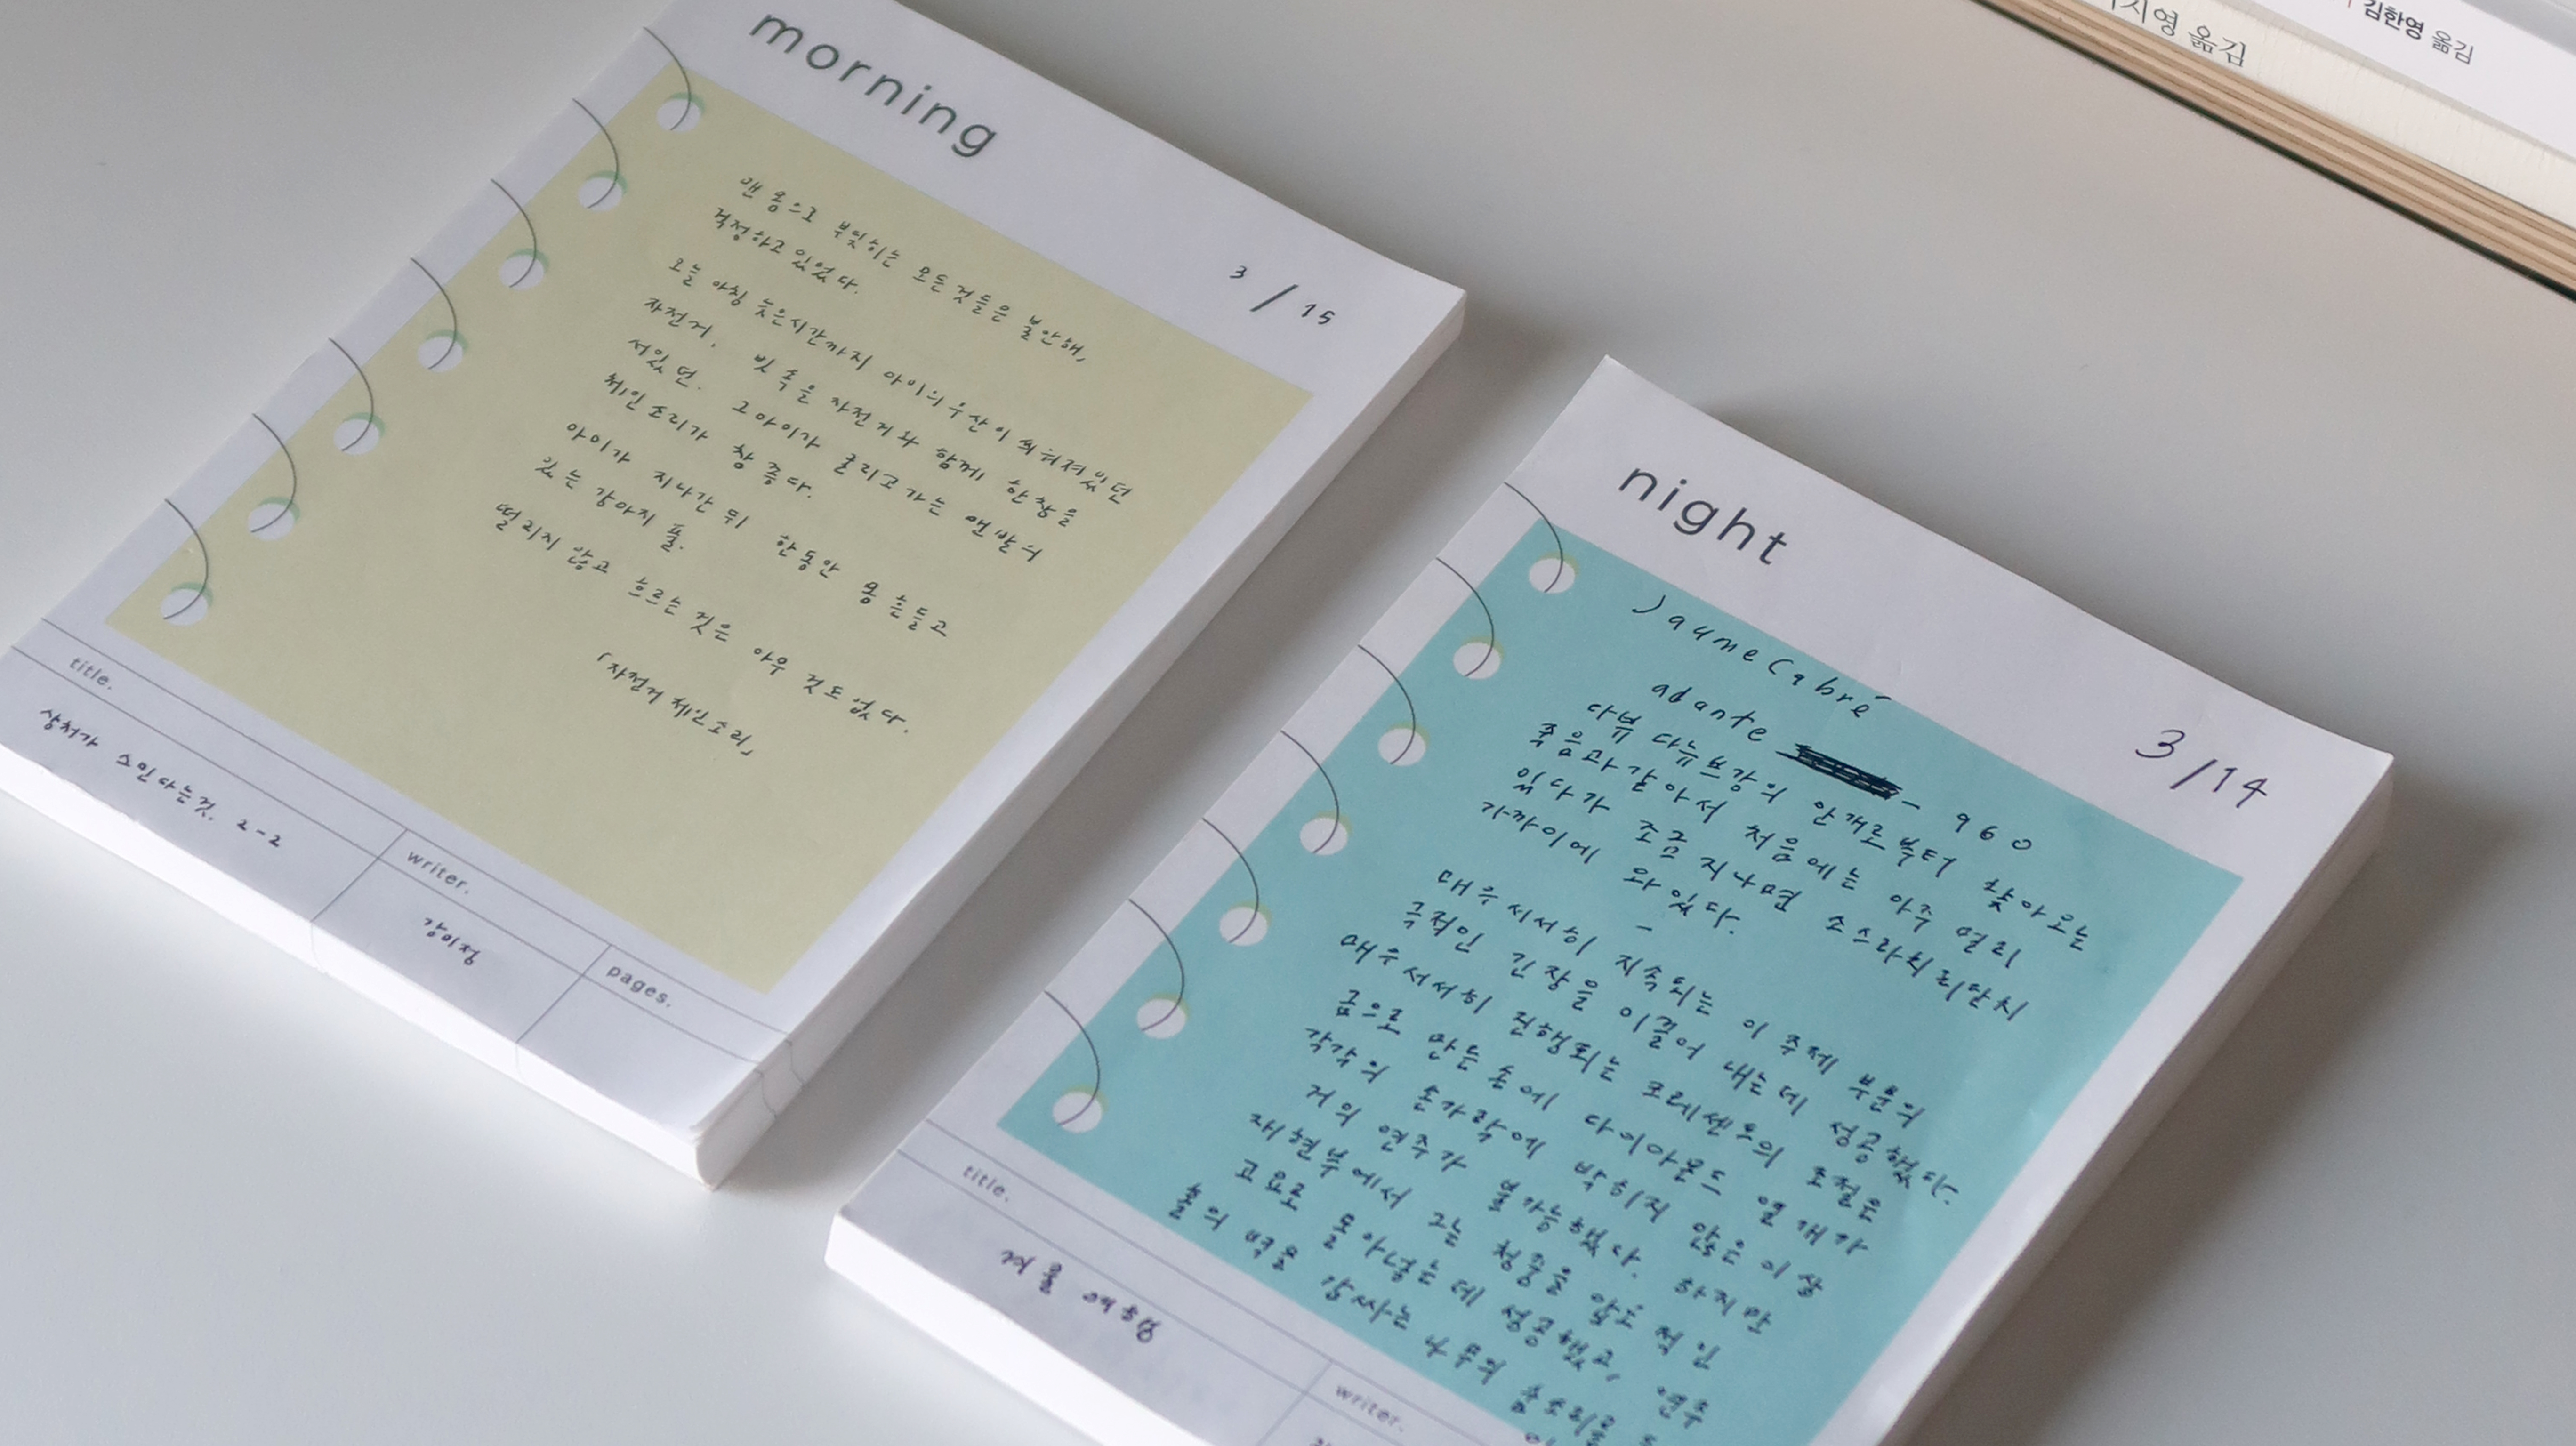 morning
3 / 15
맨 몸으로 부딪히는 모든 것들은 불안해,
걱정하고 있었다.
오늘 아침 늦은시간까지 아이의 우산이 씌워져있던
자전거. 빗 속을 자전거와 함께 한참을
서있던. 그아이가 굴리고 가는 맨발의
체인소리가 참 좋다.
아이가 지나간 뒤 한동안 몸 흔들고
있는 강아지 풀.
떨리지 않고 흐르는 것은 아무 것도 없다.
「자전거 체인소리」
title.
상처가 스민다는것. 2-2
writer.
강이정
pages.
night
3/14
Jaume Cabré
adante - 960
다뉴브강의 안개로부터 찾아오는
죽음과 같아서 처음에는 아주 멀리
있다가 조금 지나면 소스라치리만치
가까이에 와 있다.
매우 서서히 지속되는 이 주제 부분의
극적인 긴장을 이끌어 내는데 성공했다.
매우 서서히 진행되는 크레센도의 조절은
금으로 만든 손에 다이아몬드 열 개가
각각의 손가락에 박히지 않은 이상
거의 연주가 불가능했다. 하지만
재현부에서 그는 청중을
고요로 몰아넣는 데 성공했고, 연주
홀의 벽을 감싸는 나무의 숨소리를
title.
겨울 여행
writer.
지영 옮김
김한영 옮김